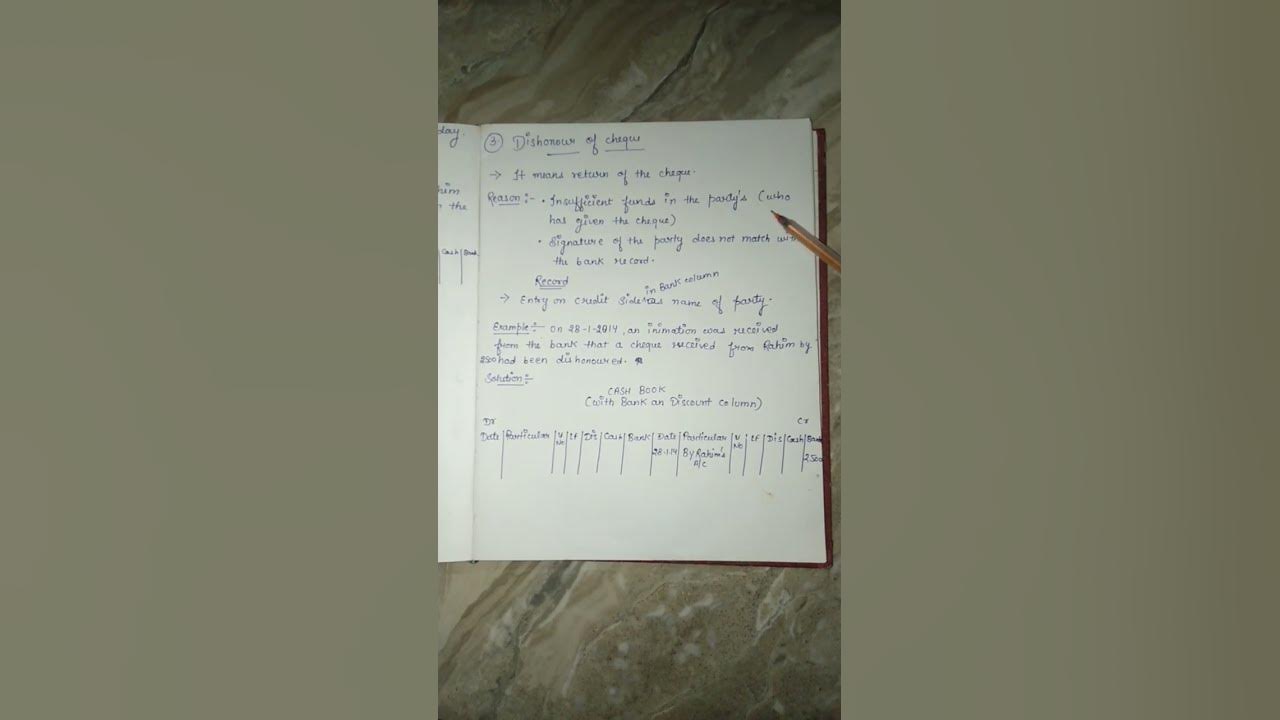 day.
him
the
Cash Bank
③ Dishonour of cheque
→ It means return of the cheque.
Reason :- • Insufficient funds in the party's (who
has given the cheque)
• Signature of the party does not match with
the bank record.
Record
in Bank column
→ Entry on credit side as name of party.
Example :- On 28-1-2014, an inimation was received
from the bank that a cheque received from Rahim by
2500 had been dishonoured.
Solution :-
CASH BOOK
(with Bank an Discount column)
Dr Cr
Date Particular V No lf Dis Cash Bank Date Particular V No lf Dis Cash Bank
28.1.14 By Rahim's A/c 2500